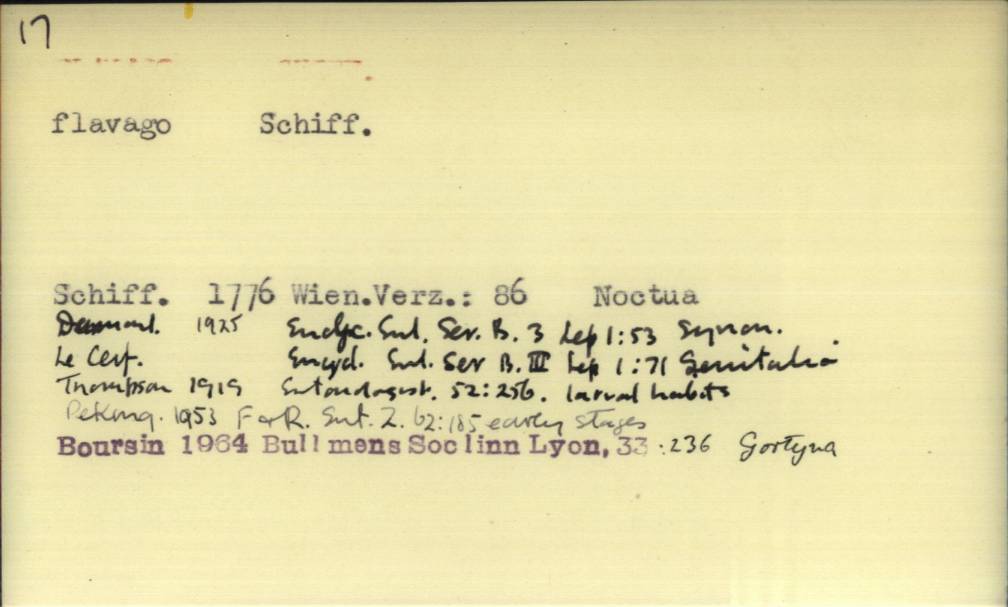 17
flavago Schiff.
Schiff. 1776 Wien.Verz.: 86 Noctua
1925 Encyc. Ent. Ser. B. 3 Lep 1:53 Synon.
Le Cerf. Encycl. Ent. Ser B. III Lep 1:71 Genitalia
Thompson 1919 Entomologist. 52:256. larval habits
1953 Ent. Z. 62:185 early stages
Boursin 1964 Bull mens Soc linn Lyon, 33 :236 Gortyna